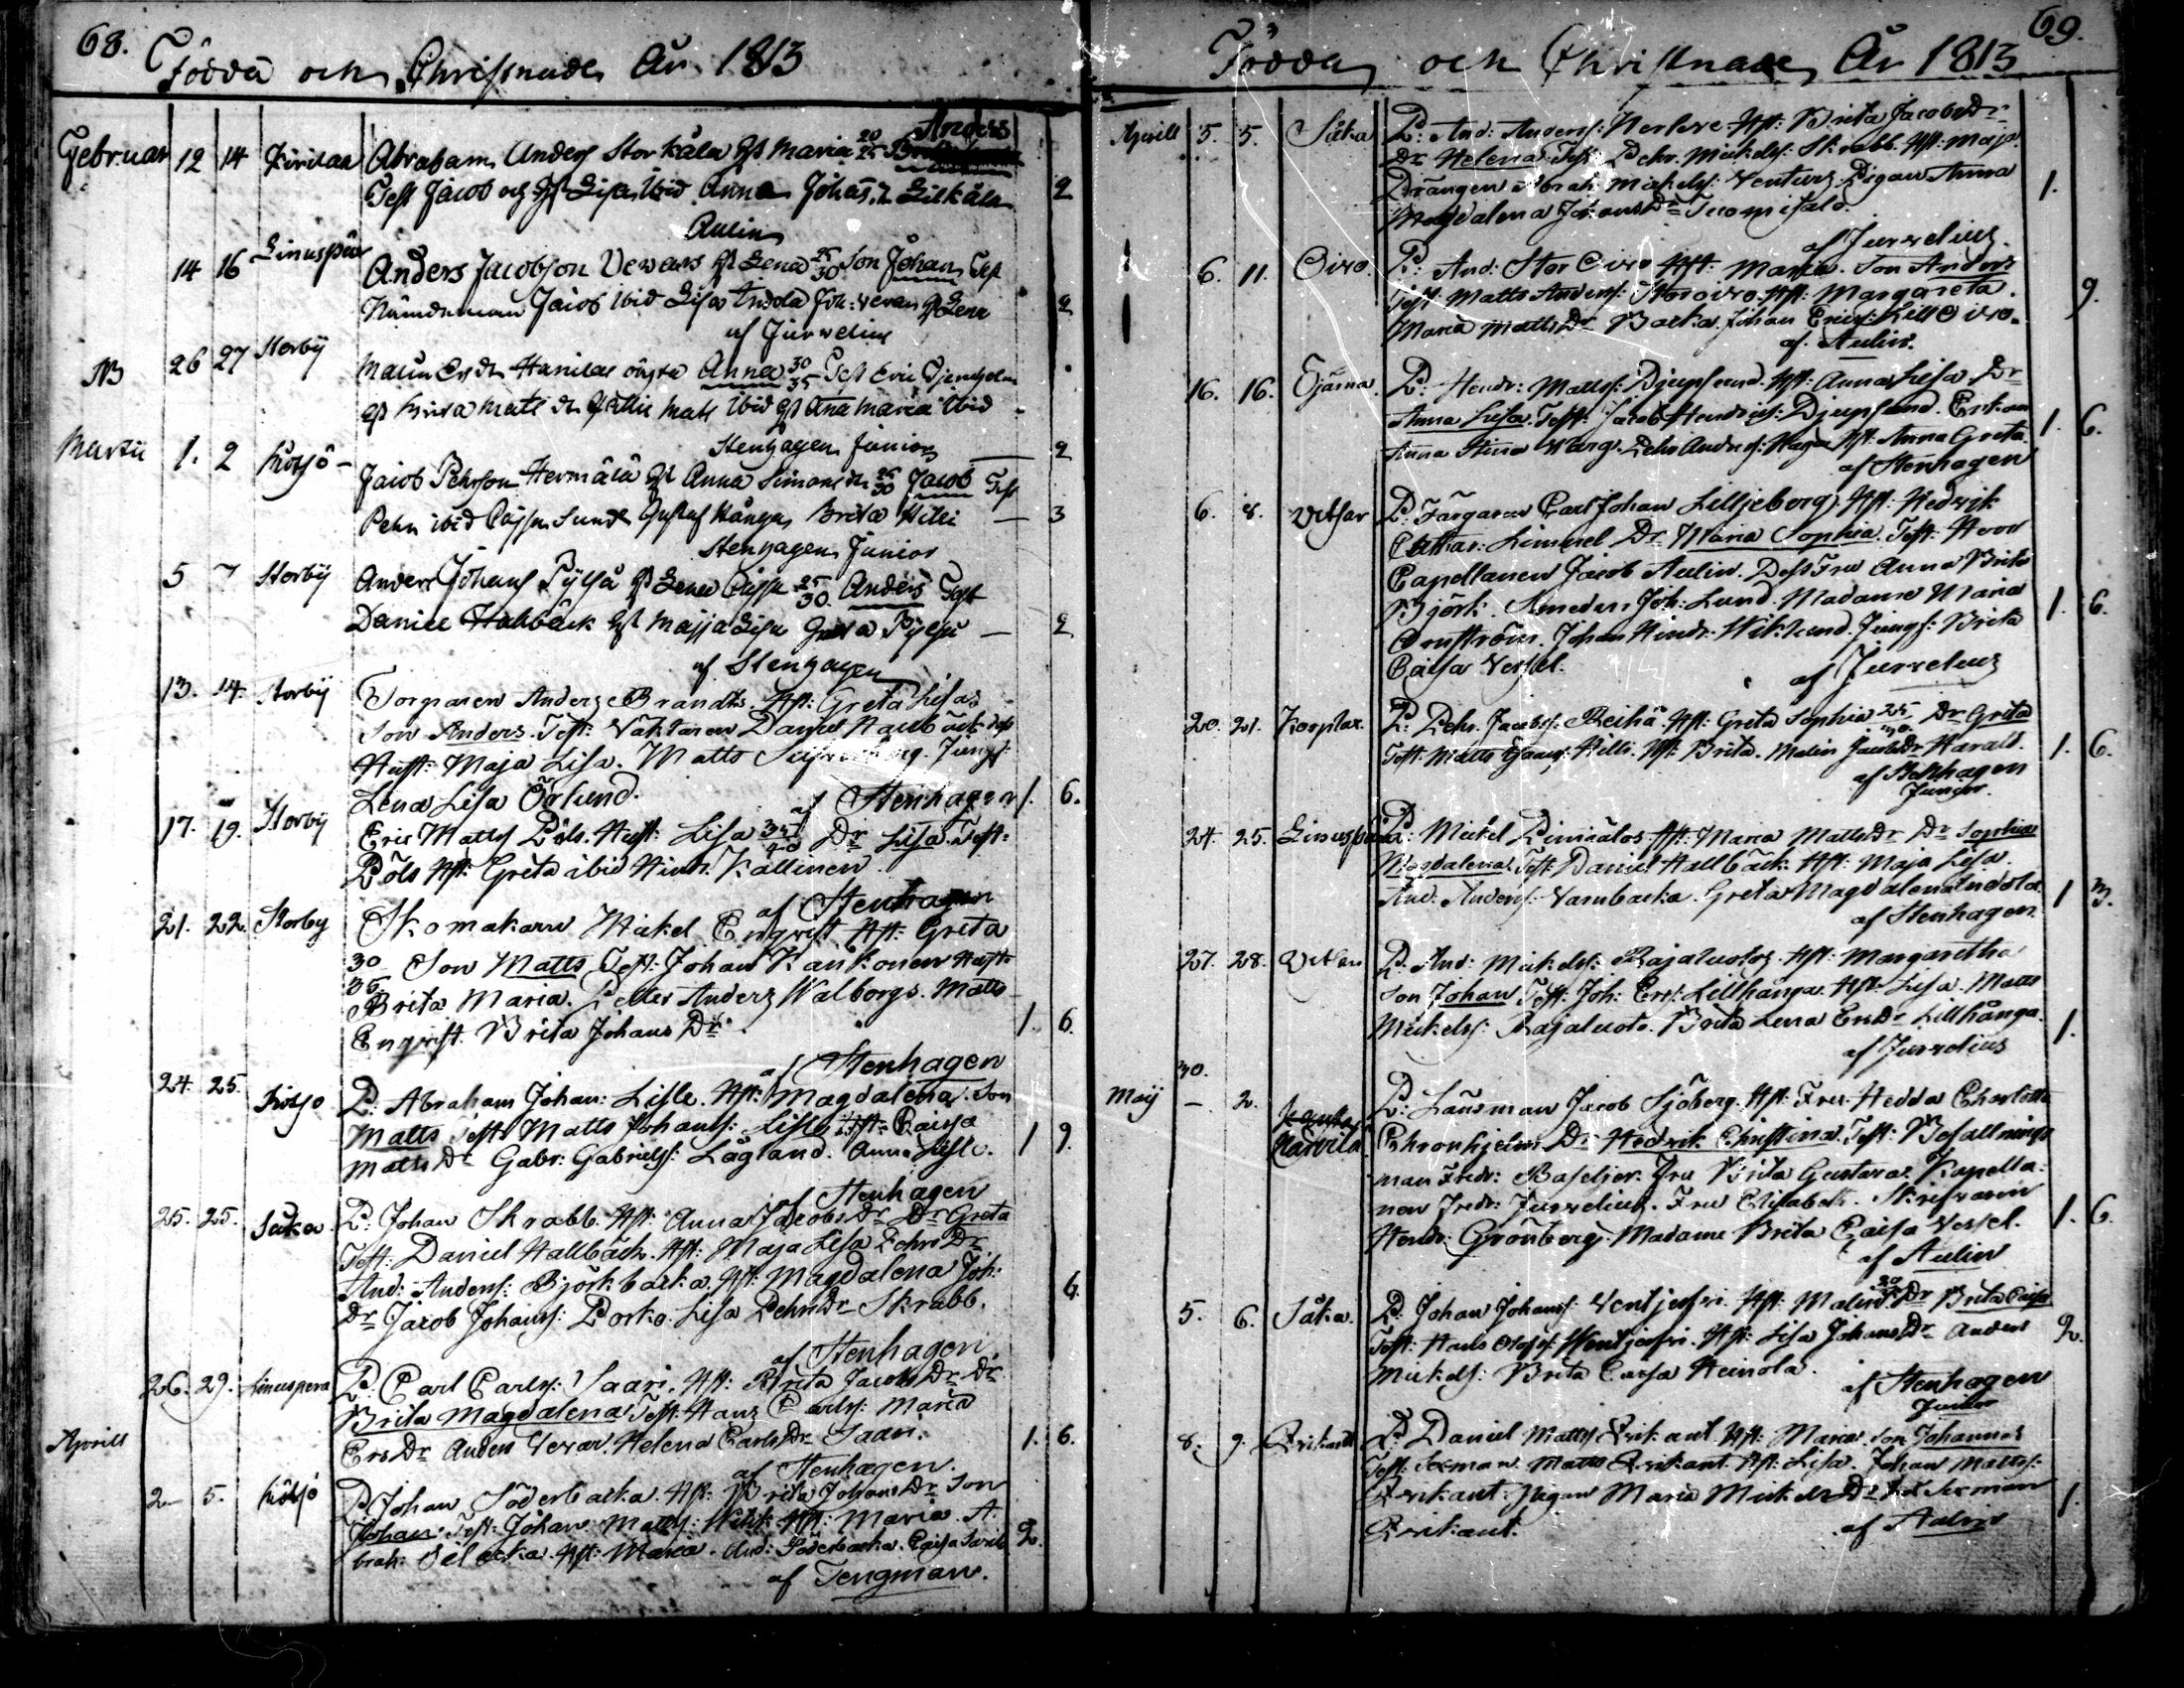 68.
Födda och Christnade År 1813
Anders
Februar 12 14 Abraham Anders Storkåla hst Maria 20/25
Test Jacob och hst Lisa ibid Anna Johans Lillkåla 2
Aulin
14 16 Linuspää Anders Jacobson Vevars hst Lena 25/30 Son Johan Test
Nämdeman Jacob ibid Lisa Indola Joh: Vevars hst Lena 2
af Jurvelius
NB 26 27 Storby Malin Anna 30/35 Test Eric
hst ibid hst Ana Maria ibid
Stenhagen Junior 2
Martii 1. 2 Kotsjö Jacob Pehrson Hermälä hst Anna Simons dr 26/30 Jacob Test
Pehr ibid Cajsa Sund Gustaf Hånga Brita Hilli 3
Stenhagen Junior
5 7 Storby Anders Johans Pylsy hst Lena Cajsa 25/30. Anders Test
Daniel Hallbäck hst Majja Lisa Greta Pylsy 2
af Stenhagen
13. 14. Storby Torparen Anders Brandt. Hst: Greta Lisa
Son Anders. Test: Vaktaren Daniel Hallbäck dess
Hust: Maja Lisa. Matts Jungf:
Lena Lisa Örlund. af Stenhagen 1. 6.
17. 19. Storby Eric Matts Pöls. Hust: Lisa 35/40 Dr Lisa. Test:
Pöls Hst: Greta ibid Hindr. Källinen.
af Stenhagen
21. 22. Storby Skomakaren Mickel Enqvist Hst: Greta
30 Son Matts Test: Johan Kankonen Hust:
35. Brita Maria. Petter Anders Walborgs. Matts
Enqvist. Brita Johans Dr. 1. 6.
af Stenhagen
24. 25. Kotsjö P. Abraham Johan: Lisle. Hst: Magdalena. Son
Matts Test: Matts Johans: Lisle Hst: Caissa
Matts Dr Gabr: Gabriels: Lågland. Anna Lisle. 1 9.
af Stenhagen
25. 25. Såka P: Johan Skrabb. Hst: Anna Jacobs Dr Dr Greta
Test: Daniel Hallbäck. Hst: Maja Lisa Pehrs Dr
And: Anders: Björkbacka. Hst: Magdalena Joh:
Dr Jacob Johans: Porko. Lisa Pehrs Dr Skrabb. 6.
af Stenhagen
26. 29. Linuspera P: Carl Carls: Saari. Hst: Brita Jacobs Dr Dr
Brita Magdalena Test: Hans Carls: Maria
Ers Dr Anders Vevar. Helena Carls Dr Saari. 1. 6.
Aprill
af Stenhagen.
2 5. Kotsjö P. Johan Söderbacka. Hst: Brita Johans Dr Son
Johan Test: Johan Matts: Hst: Maria. A:
brah: Hst: Maria. And: Söderbacka. Caisa 2.
af Tengman.
69.
Födda och Christnade År 1813
Aprill 5. 5. Såka P: And: Anders: Herlere Hst: Brita Jacobs Dr
Dr Helena Test: Pehr. Mickels: Skrabb. Hst: Maja
Drängen Abrah: Mickels: Venturs. Pigan Anna
Magdalena Johans Dr 1.
af Jurvelius.
6. 11. Oivo. P: And: Stor Oivo Hst: Maria. Son Anders
Test: Matts Anders: Storoivo. Hst: Margareta.
Maria Matts Dr Backa. Johan Erics: Lill Oivo. 9.
af Aulin.
16. 16. Öjarna. P: Hendr: Matts: Djupsund. Hst: Anna Lisa Dr
Anna Lisa. Test: Jacob Hendrics: Djupsund. Enkan
Anna Stina Warg. Pehr Anders: Haga Hst: Anna Greta. 1. 6.
af Stenhagen
6. 8. Vetsar P: Färgaren Carl Johan Lilljeborg Hst: Hedvik
Cathar: Limnel Dr Maria Sophia. Test: Herr
Capellanen Jacob Aulin. Dess Fru Anna Brita
Björk. Smeden Joh: Lund. Madame Maria 1. 6.
Ornström. Johan Hindr: Wiklund. Jungf: Brita
Caisa Vessel. af Jurvelius
20. 21. Korplax. P: Pehr. Jacobs: Reihä. Hst: Greta Sophia 25/30 Dr Greta
Test: Matts Hilli. Hst: Brita. Malin Jacobs Dr Harald. 1. 6.
af Stenhagen
Junior.
24. 25. Linuspära P: Mickel Pimiälos Hst: Maria Matts Dr Dr Sophia
Magdalena. Test: Daniel Hallbäck. Hst: Maja Lisa.
And: Anders: Vambacka. Greta Magdalena Indola. 1 3.
af Stenhagen.
27. 28. P: And: Mickels: Rajaluotos. Hst: Margaretha
Son Johan Test: Joh: Ers: Lillhånga. Hst: Lisa. Matts
Mickels: Rajaluoto. Brita Lena Ers Dr Lillhånga. 1.
af Jurvelius
30.
Maij 2. Harvila P: Länsman Jacob Sjöberg. Hst: Fru Hedda Charlotta
Ehronhjelm Dr Hedvik Christina. Test: Befallnings
man Fredr: Baseljer. Fru Brita Gustava. Kapella-
nen Fredr: Jurvelius. Fru Elisabeth. Skrifvaren
Hendr: Grönberg. Madame Brita Caisa Vessel. 1. 6.
af Aulin
5. 6. Såka. P. Johan Johans: Ventjesri. Hst: Malin 20 Dr Brita Caisa
Test: Hans Olofs: Wentjesri. Hst: Lisa Johans Dr Anders 2.
Mickels: Brita Caisa Heinola.
af Stenhagen
Junior
8. 9. Erikant P: Daniel Matts Erikant Hst: Maria. Son Johannes
Test: Sexman. Matts Erikant. Hst: Lisa. Johan Matts:
Erikant. Pigan Maria Mickels Dr Sexman 1.
Erikant. af Aulin